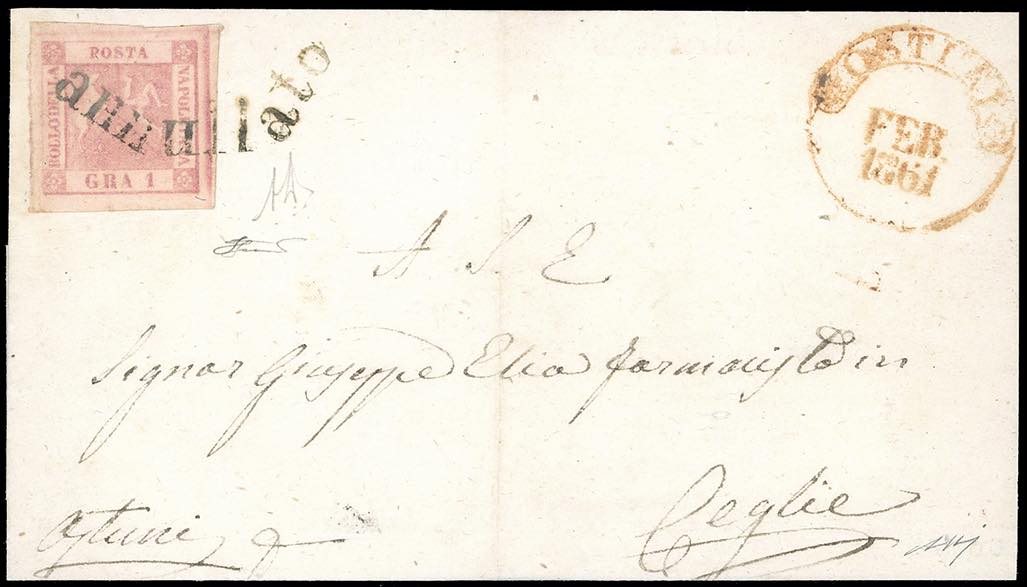 ROSTA
BOLLO DELLA
NAPOLETANA
GRA 1
annullato
OSTUNI
FEB.
1861
A S E
Signor Giuseppe Elia farmacista in
Ceglie
Ostuni